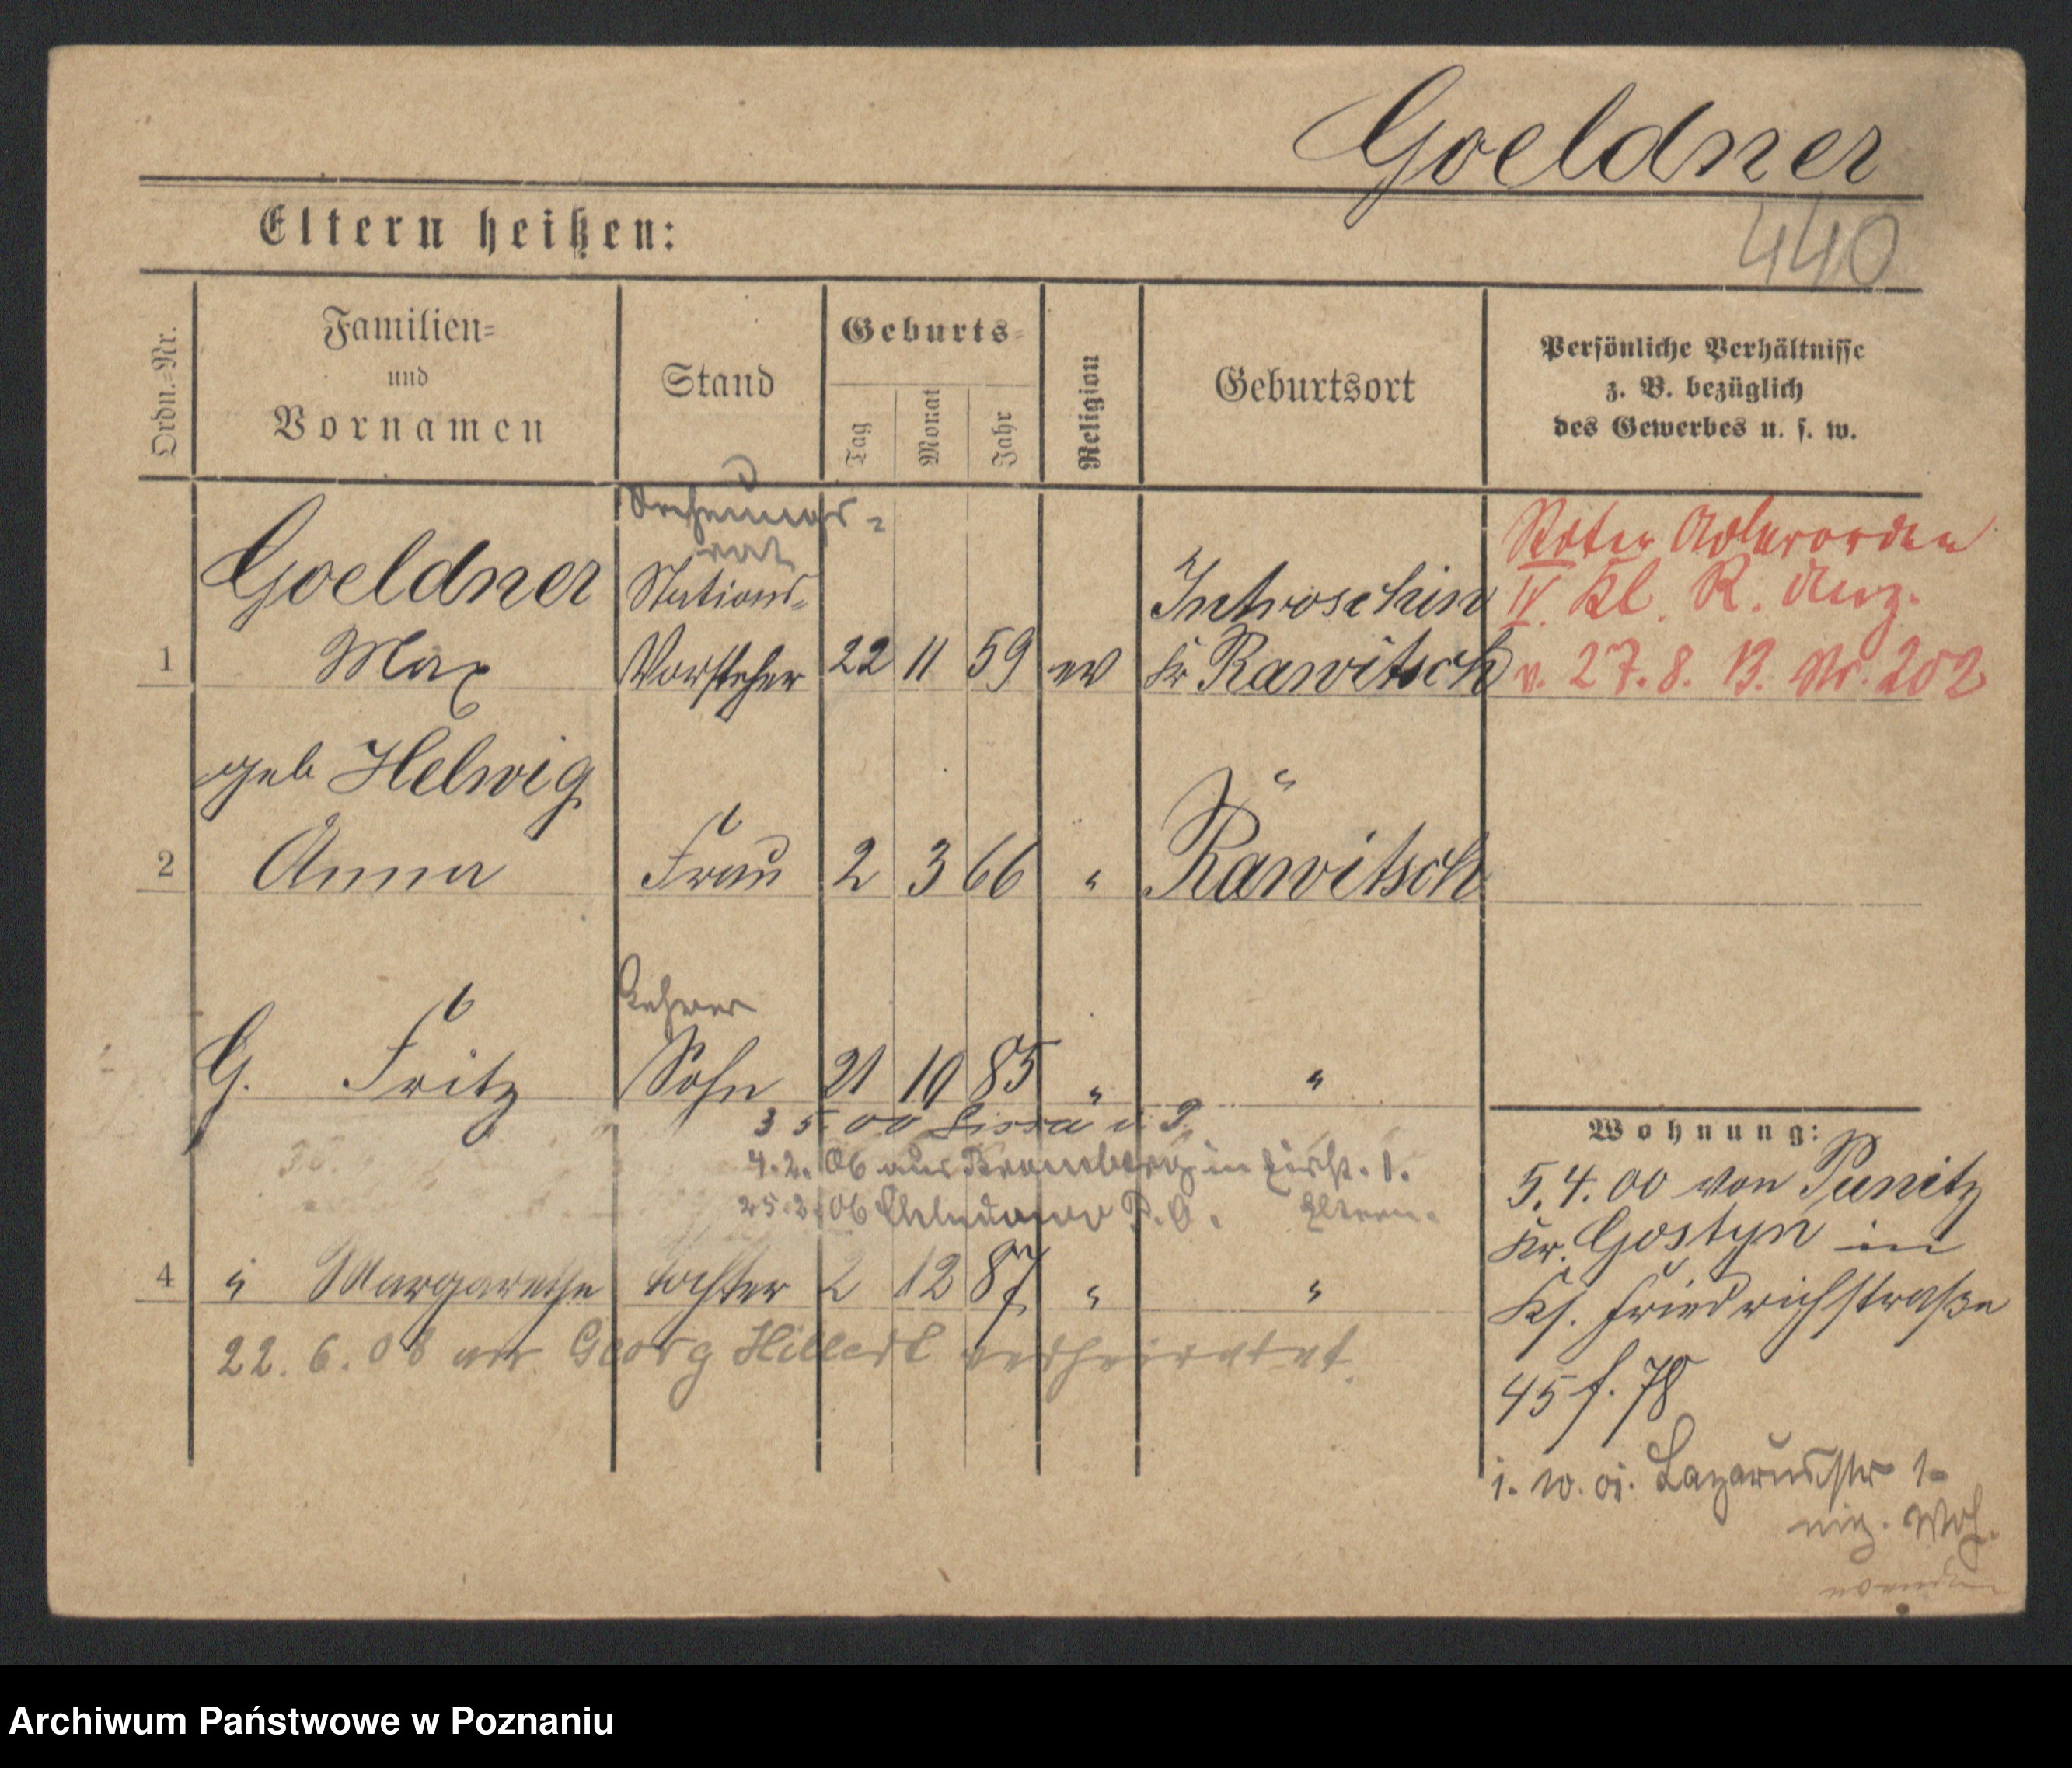 Goeldner
440
Eltern heißen:
Ordn.=Nr.
Familien= und Vornamen
Stand
Geburts=
Tag
Monat
Jahr
Religion
Geburtsort
Persönliche Verhältnisse
z. B. bezüglich
des Gewerbes u. s. w.
Rechnungs=
rat
Goeldner
Stations=
Jutroschin
Roter Adlerorden
IV. Kl. R. Anz.
1 Max Vorsteher 22 11 59 ev Kr Rawitsch
v. 27. 8. 13. Nr. 202
geb Helwig
2 Anna Frau 2 3 66 " Rawitsch
Lehrer
G. Fritz Sohn 21 10 85 " "
3 5 00 Lissa i. P.
4. 2. 06 aus Bromberg in
25. 2. 06 P. O. Eltern.
4 " Margarethe Tochter 2 12 87 " "
22. 6. 08 an Georg verheiratet.
Wohnung:
5. 4. 00 von Punitz
Kr. Gostyn in
Friedrichstraße
45 f. 78
Lazarusstr 1